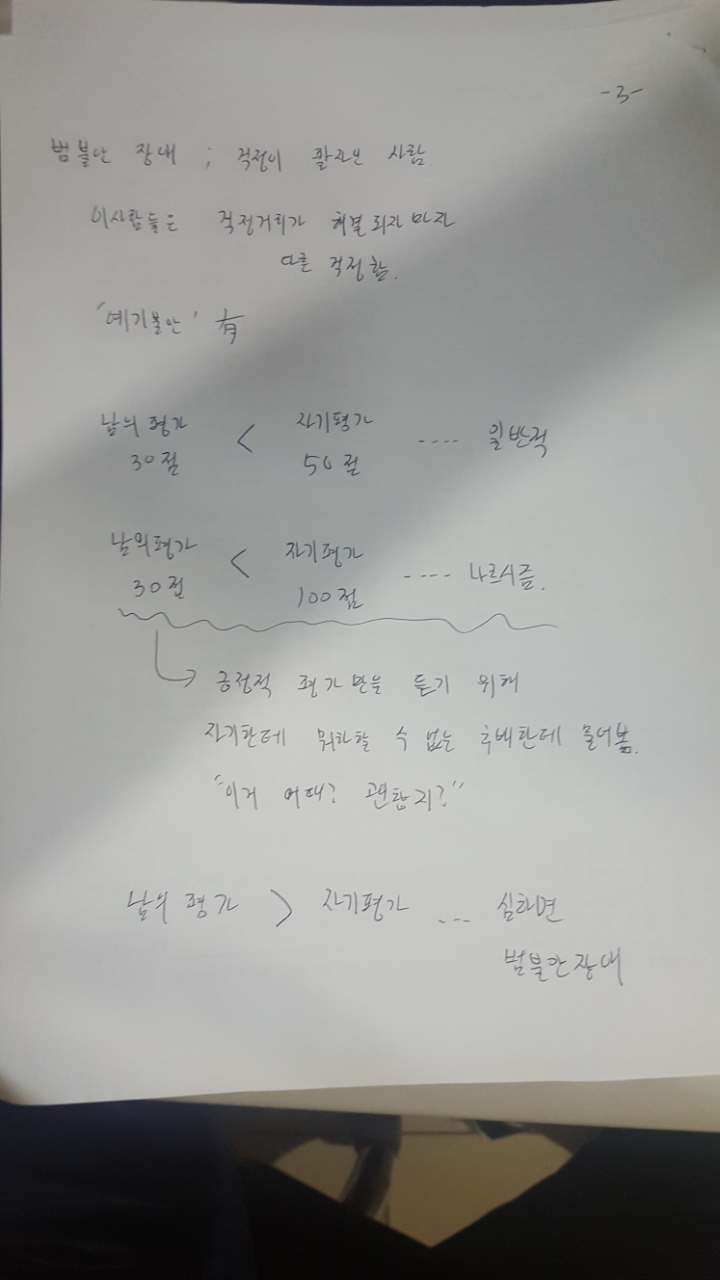 -3-
범불안 장애 ; 걱정이 팔자인 사람
이사람들은 걱정거리가 해결되자마자
다른 걱정함.
'예기불안' 有
남의평가 < 자기평가 ---- 일반적
30점 50점
남의평가 < 자기평가 ---- 나르시즘.
30점 100점
긍정적 평가만을 듣기 위해
자기한테 뭐라할 수 없는 후배한테 물어봄.
"이거 어때? 괜찮지?"
남의 평가 > 자기평가 --- 심하면
범불안장애